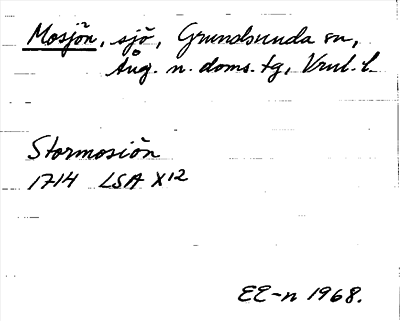 Mosjön, sjö, Grundsunda sn,
Ång. n. doms. tg, Vnl. l.
Stormosiön
1714 LSA X12
EE-n 1968.